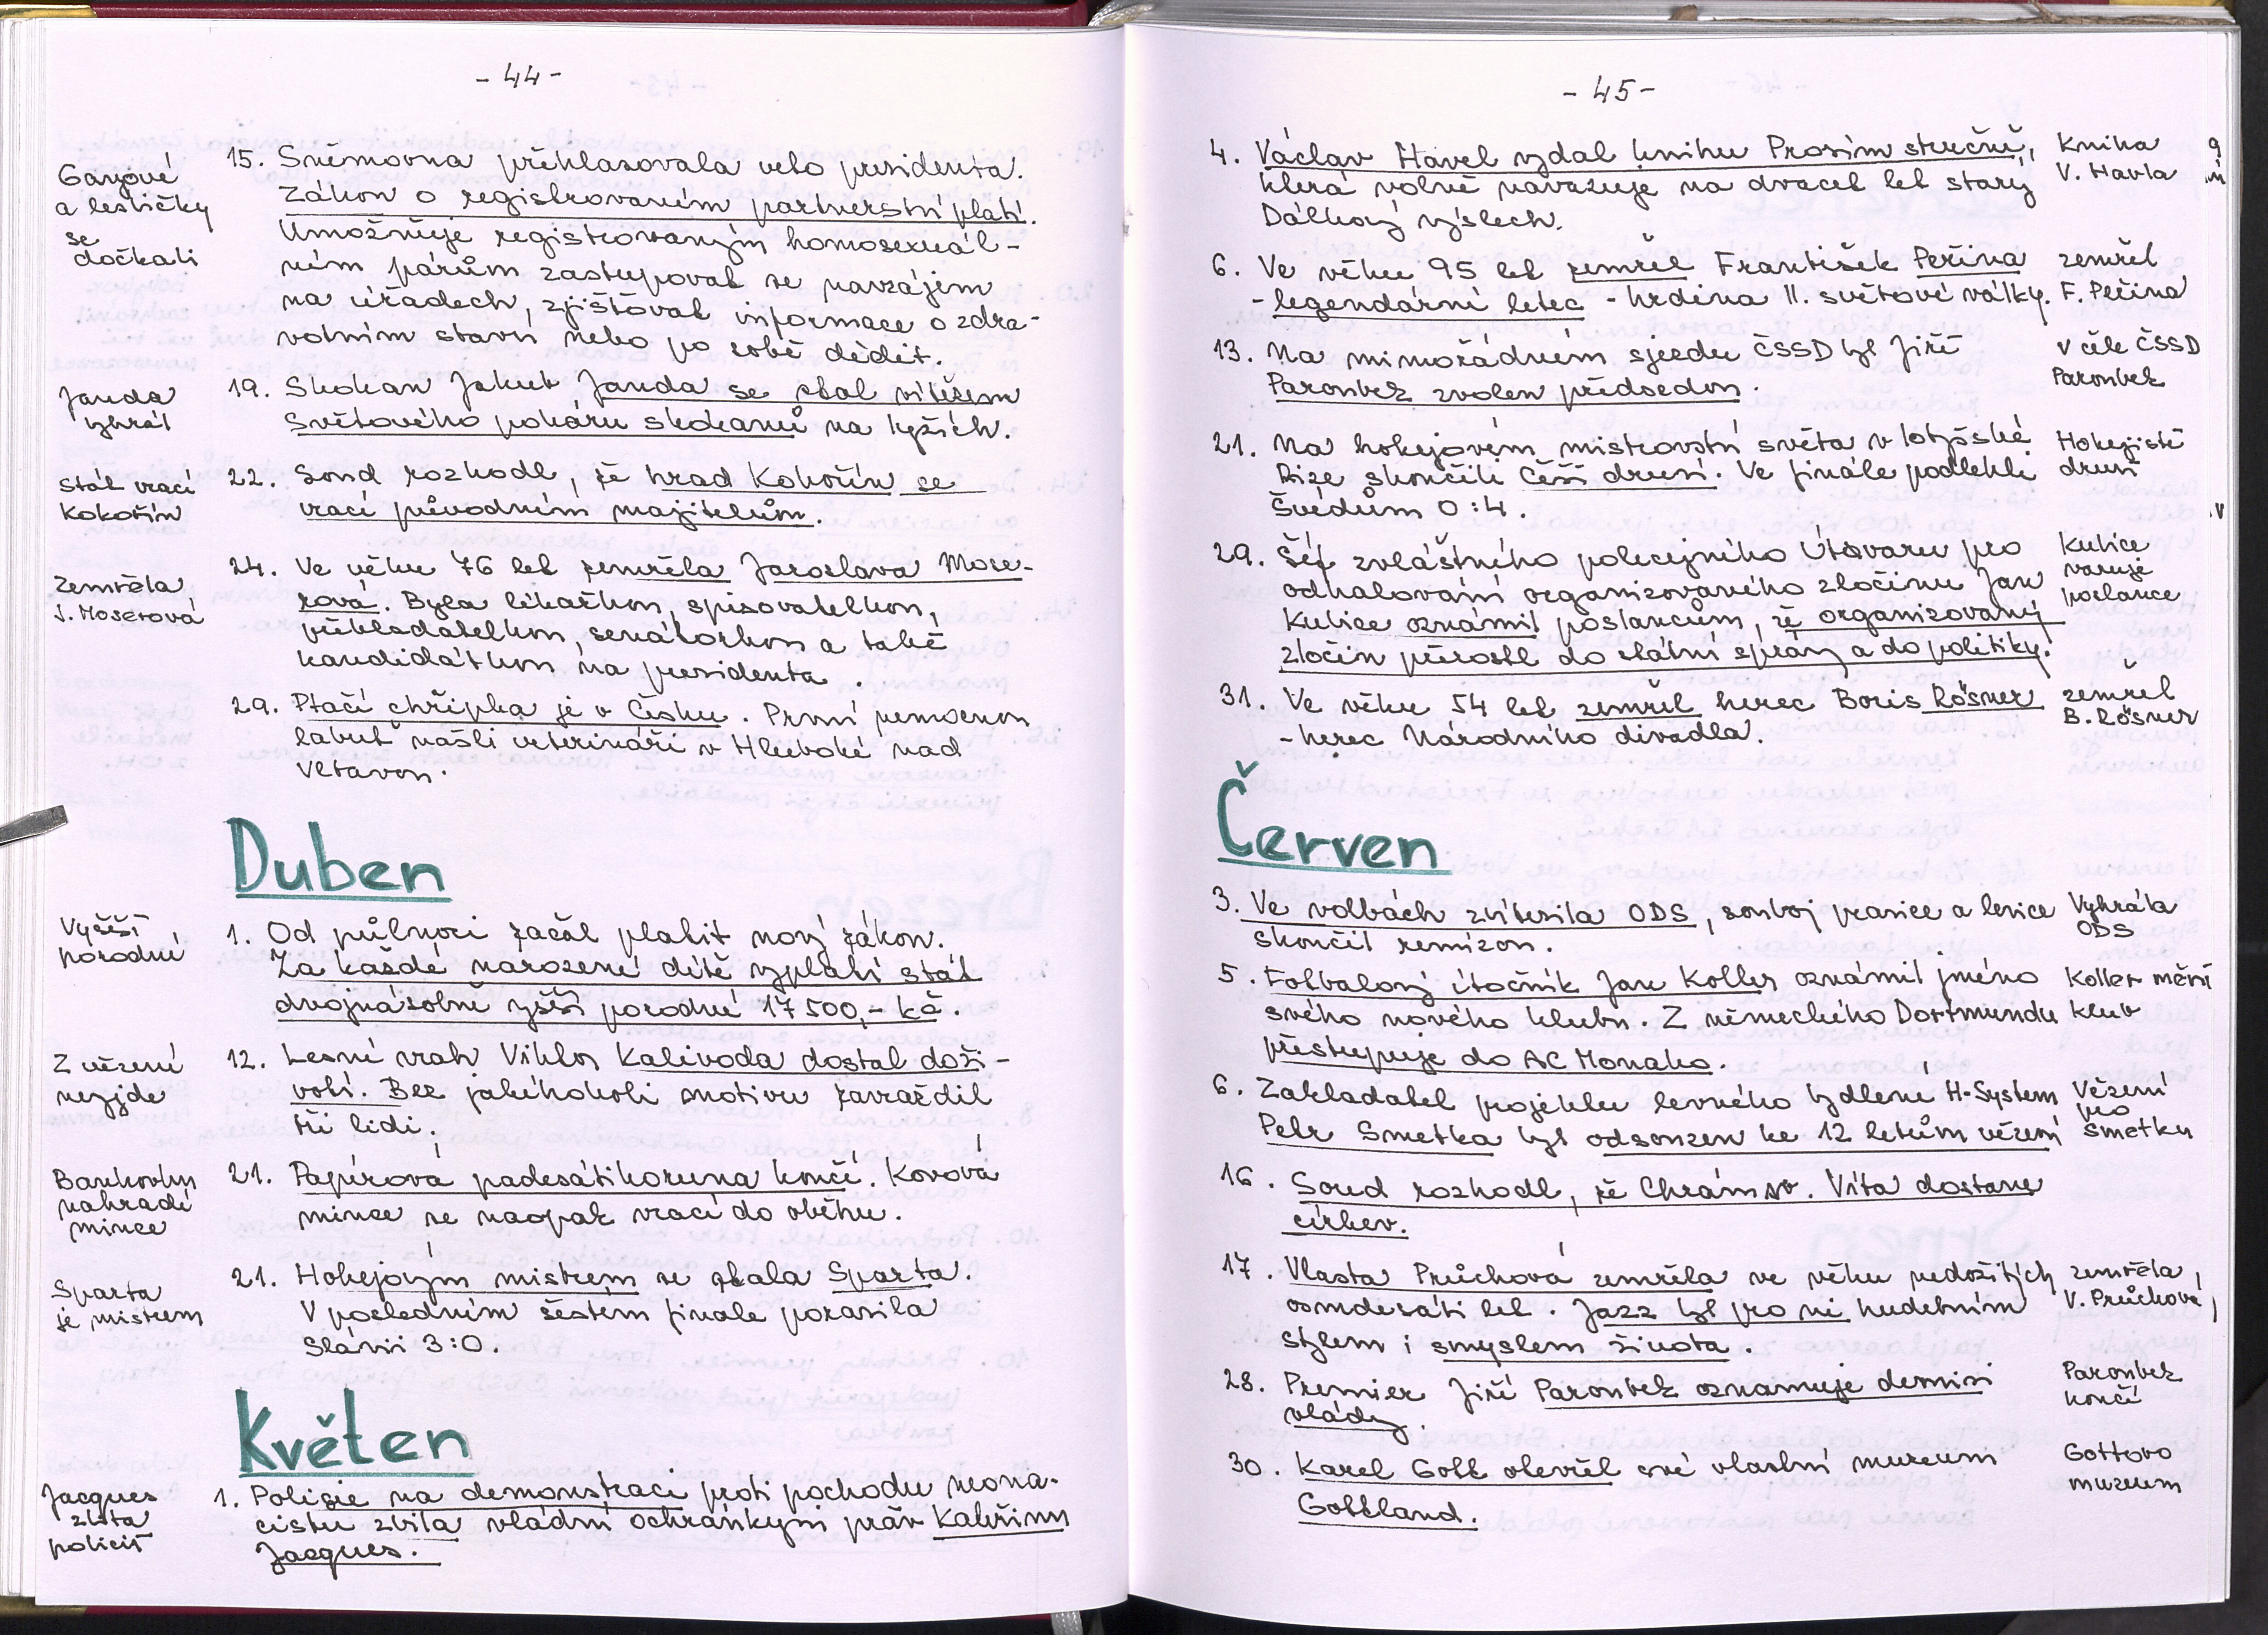 - 44 -
Gayové
a lesbičky
se
dočkali
15. Sněmovna přehlasovala veto presidenta.
Zákon o registrovaném partnerství platí.
Umožňuje registrovaným homosexuál-
ním párům zastupovat se navzájem
na úřadech, zjišťovat informace o zdra-
votním stavu nebo po sobě dědit.
Janda
vyhrál
19. Skokan Jakub Janda se stal vítězem
Světového poháru skokanů na lyžích.
stát vrací
Kokořín
22. Soud rozhodl, že hrad Kokořín se
vrací původním majitelům.
zemřela
J. Moserová
24. Ve věku 76 let zemřela Jaroslava Mose-
rová. Byla lékařkou, spisovatelkou,
překladatelkou, senátorkou a také
kandidátkou na presidenta.
29. Ptačí chřipka je v Česku. První nemocnou
labuť našli veterináři v Hluboké nad
Vltavou.
Duben
Vyšší
porodné
1. Od půlnoci začal platit nový zákon.
Za každé narozené dítě vyplatí stát
dvojnásobně vyšší porodné 17 500,- kč.
Z vězení
nevyjde
12. Lesní vrah Viktor Kalivoda dostal doži-
votí. Bez jakéhokoli motivu zavraždil
tři lidi.
Bankovku
nahradí
mince
21. Papírová padesátikoruna končí. Kovová
mince se naopak vrací do oběhu.
Sparta
je mistrem
21. Hokejovým mistrem se stala Sparta.
V posledním šestém finále porazila
Slávii 3:0.
Květen
Jacques
zbita
policií
1. Policie na demonstraci proti pochodu neona-
cistů zbila vládní ochránkyni práv Kateřinu
Jacques.
- 45 -
4. Václav Havel vydal knihu Prosím stručně,
která volně navazuje na dvacet let starý
Dálkový výslech.
Kniha
V. Havla
6. Ve věku 95 let zemřel František Peřina
- legendární letec - hrdina II. světové války.
zemřel
F. Peřina
13. Na mimořádném sjezdu ČSSD byl Jiří
Paroubek zvolen předsedou.
V čele ČSSD
Paroubek
21. Na hokejovém mistrovství světa v lotyšské
Rize skončili Češi druzí. Ve finále podlehli
Švédům 0:4.
Hokejisté
druzí
29. Šéf zvláštního policejního Útvaru pro
odhalování organizovaného zločinu Jan
Kubice oznámil poslancům, že organizovaný
zločin přerostl do státní správy a do politiky.
Kubice
varuje
poslance
31. Ve věku 54 let zemřel herec Boris Rösner
- herec Národního divadla.
zemřel
B. Rösner
Červen
3. Ve volbách zvítězila ODS, souboj pravice a levice
skončil remízou.
Vyhrála
ODS
5. Fotbalový útočník Jan Koller oznámil jméno
svého nového klubu. Z německého Dortmundu
přestupuje do AC Monako.
Koller mění
klub
6. Zakladatel projektu levného bydlení H-System
Petr Smetka byl odsouzen ke 12 letům vězení
Vězení
pro
Smetku
16. Soud rozhodl, že Chrám sv. Víta dostane
církev.
17. Vlasta Průchová zemřela ve věku nedožitých
osmdesáti let. Jazz byl pro ni hudebním
stylem i smyslem života.
zemřela
V. Průchová
28. Premier Jiří Paroubek oznamuje demisi
vlády.
Paroubek
končí
30. Karel Gott otevřel své vlastní muzeum
Gottland.
Gottovo
muzeum